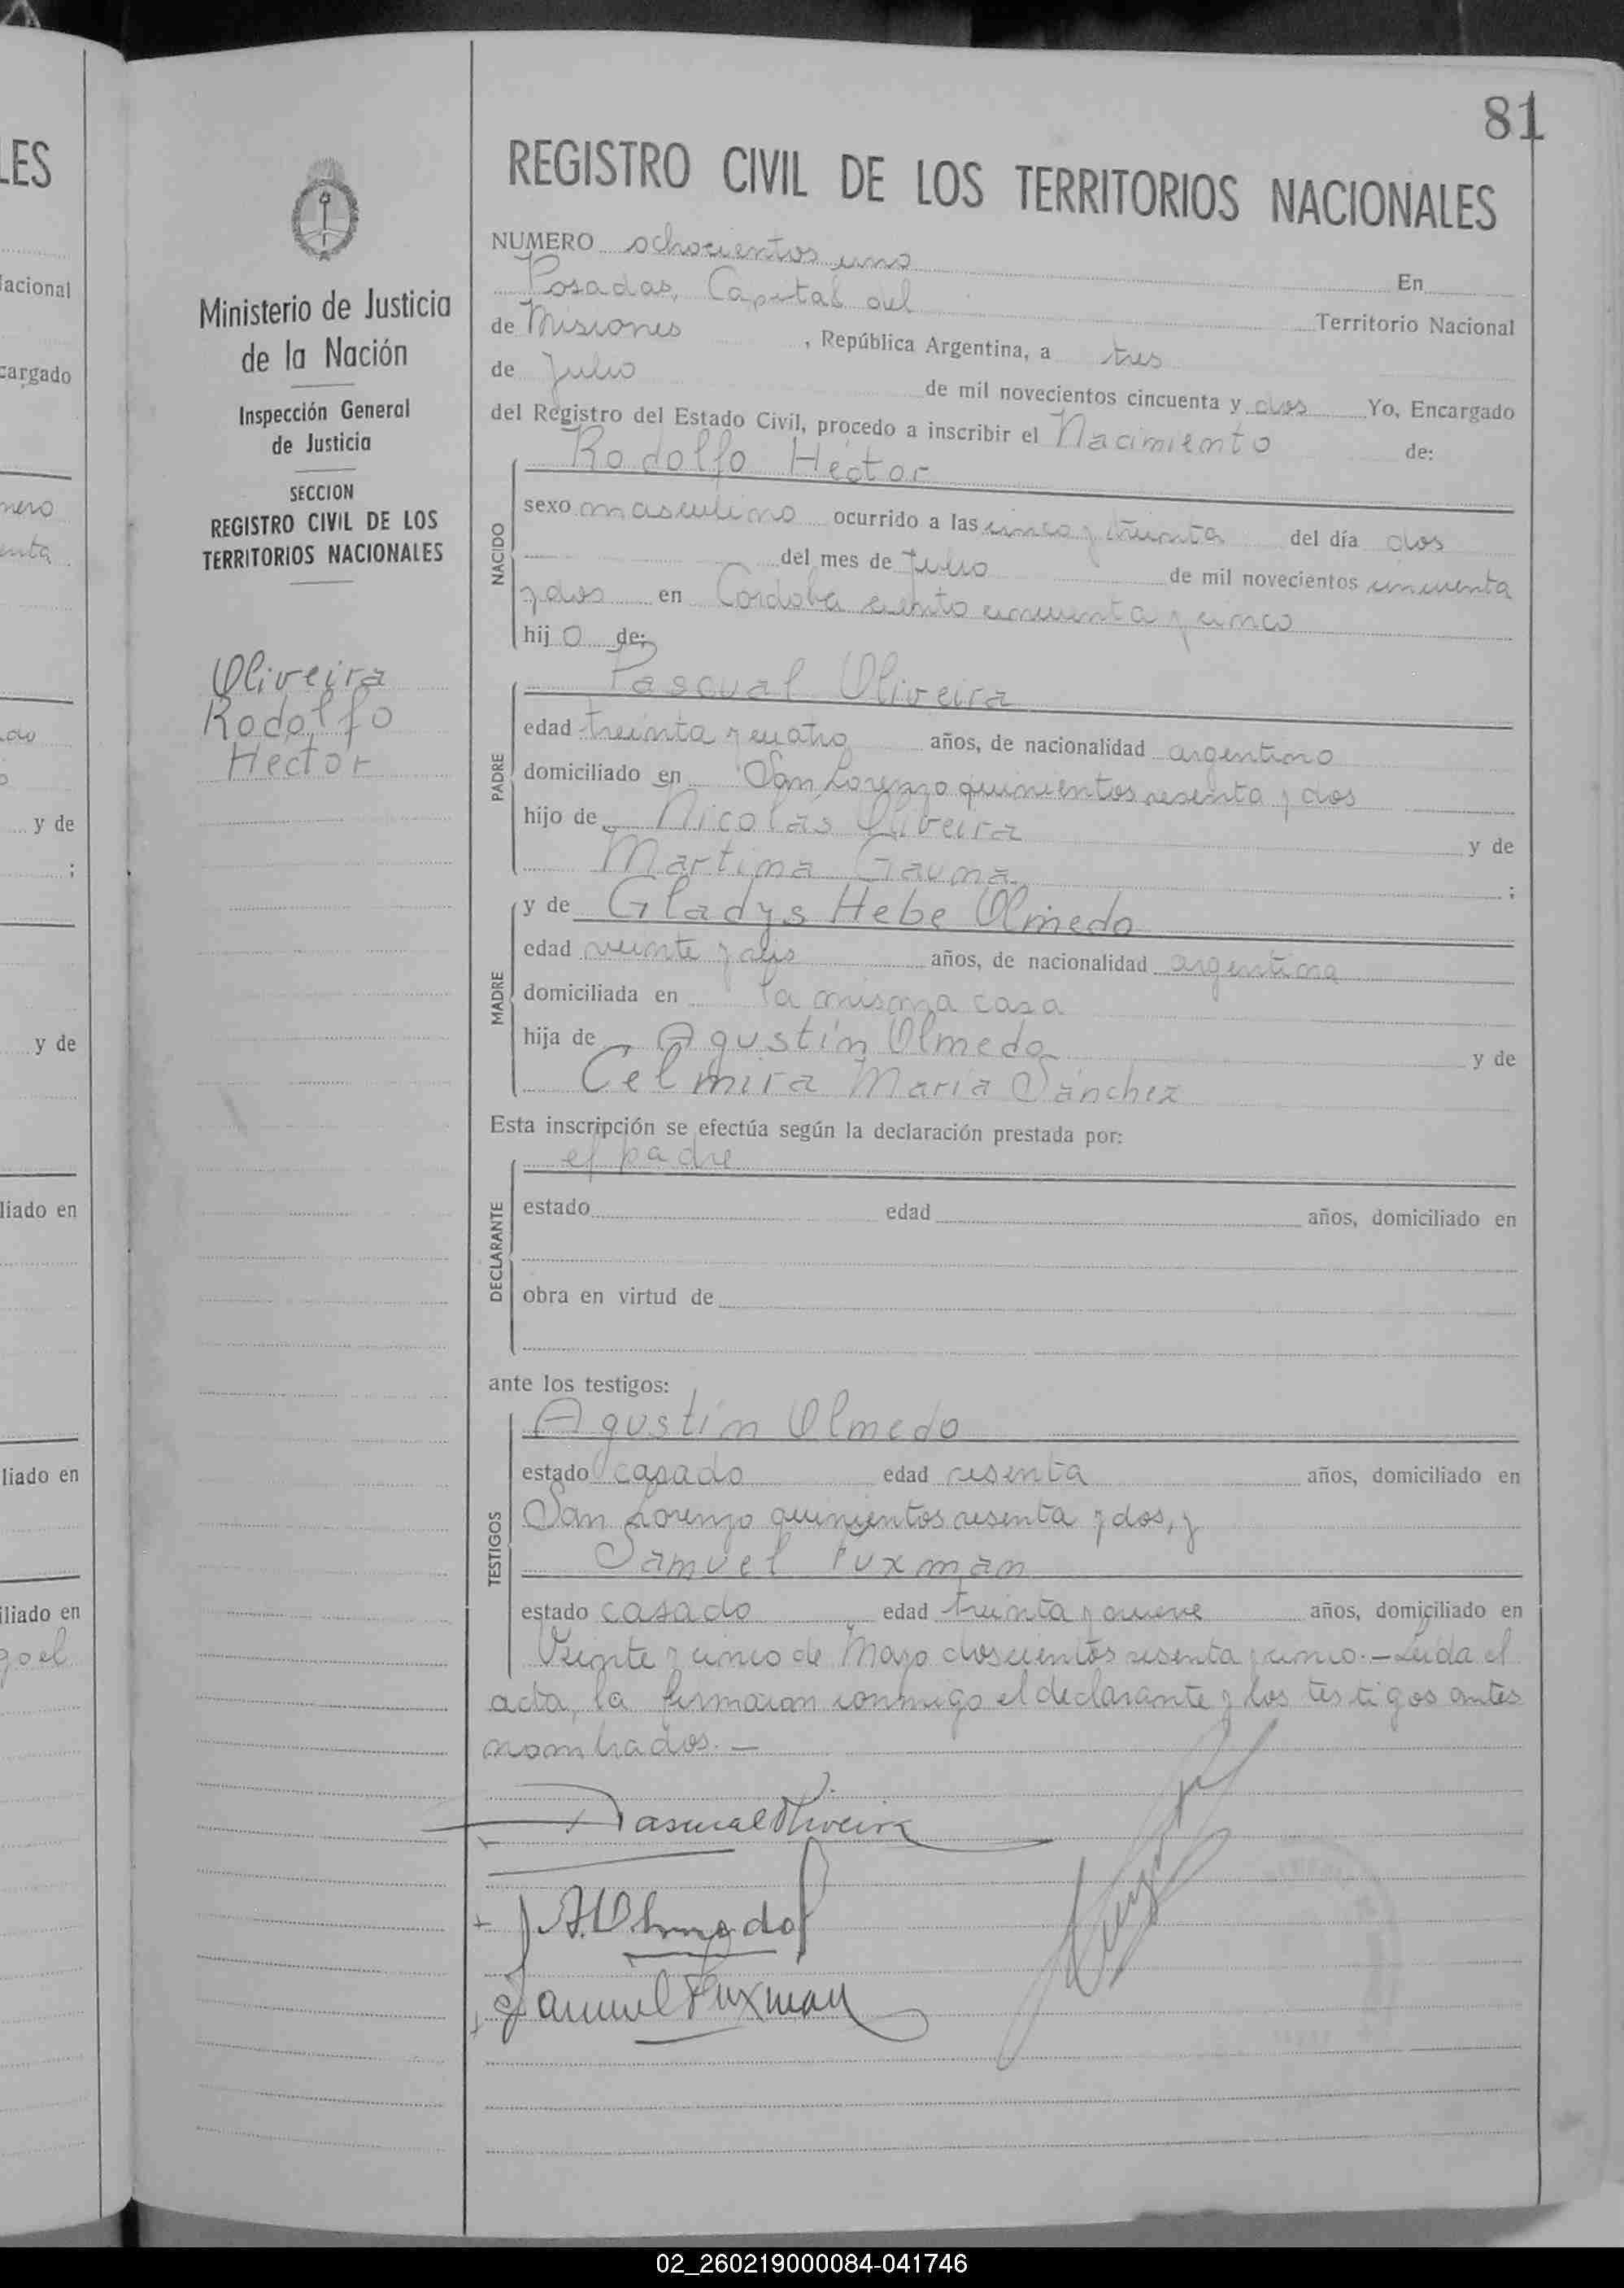 81
LES
Nacional
cargado
mero
enta
do
y de
;
y de
liado en
liado en
iliado en
go el
Ministerio de Justicia
de la Nación
Inspección General
de Justicia
SECCION
REGISTRO CIVIL DE LOS
TERRITORIOS NACIONALES
Oliveira
Rodolfo
Hector
REGISTRO CIVIL DE LOS TERRITORIOS NACIONALES
NUMERO ochocientos uno En
Posadas, Capital del Territorio Nacional
de Misiones, República Argentina, a tres
de Julio de mil novecientos cincuenta y dos Yo, Encargado
del Registro del Estado Civil, procedo a inscribir el Nacimiento de:
Rodolfo Héctor
NACIDO
sexo masculino ocurrido a las cinco y treinta del día dos
del mes de Julio de mil novecientos cincuenta
y dos en Cordoba ciento cincuenta y cinco
hijo de:
Pascual Oliveira
PADRE
edad treinta y cuatro años, de nacionalidad argentino
domiciliado en San Lorenzo quinientos sesenta y dos
hijo de Nicolás Oliveira y de
Martina Gauna ;
y de Gladys Hebe Olmedo
MADRE
edad veinte y seis años, de nacionalidad argentina
domiciliada en la misma casa
hija de Agustín Olmedo y de
Celmira María Sánchez
Esta inscripción se efectúa según la declaración prestada por:
el padre
DECLARANTE
estado edad años, domiciliado en
obra en virtud de
ante los testigos:
Agustín Olmedo
TESTIGOS
estado casado edad sesenta años, domiciliado en
San Lorenzo quinientos sesenta y dos, y
Samuel Fuxman
estado casado edad treinta y nueve años, domiciliado en
Veinte y cinco de Mayo doscientos sesenta y cinco.- Leida el
acta, la firmaron conmigo el declarante y los testigos antes
nombrados.-
Pascual Oliveira
A. Olmedo
Samuel Fuxman
02_260219000084-041746